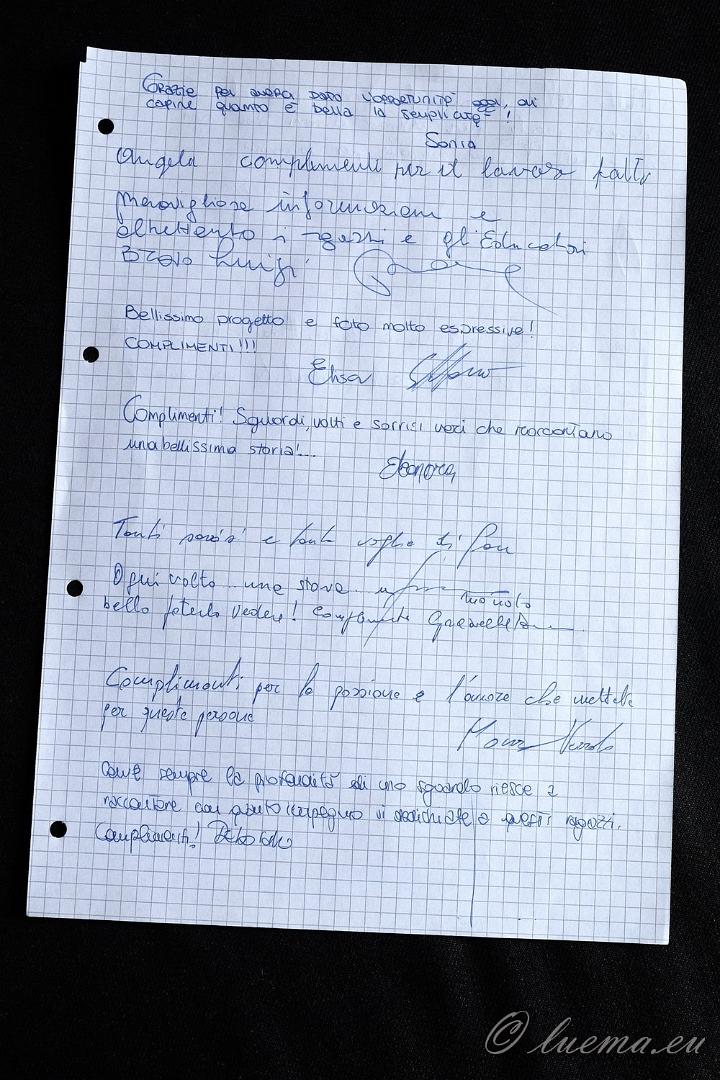 GRAZIE PER AVERCI DATO L'OPPORTUNITÀ OGGI, DI
CAPIRE QUANTO È BELLA LA SEMPLICITÀ!
Sonia
Angela complimenti per il lavoro fatto
Meravigliose informazioni e
i ragazzi e gli Educatori
Bravo Luigi
Bellissimo progetto e foto molto espressive!
COMPLIMENTI!!!
Elisa
Complimenti! Sguardi, volti e sorrisi veri che raccontano
una bellissima storia!...
Eleonora
Tanti sorrisi e tanta voglia di fare
Ogni volto... una storia...
bello poterlo vedere! Complimenti
Complimenti per la passione e l'amore che mettete
per queste persone
Come sempre la profondità di uno sguardo riesce a
raccontare con quanto impegno vi dedichiate a questi ragazzi.
Complimenti!
© luema.eu